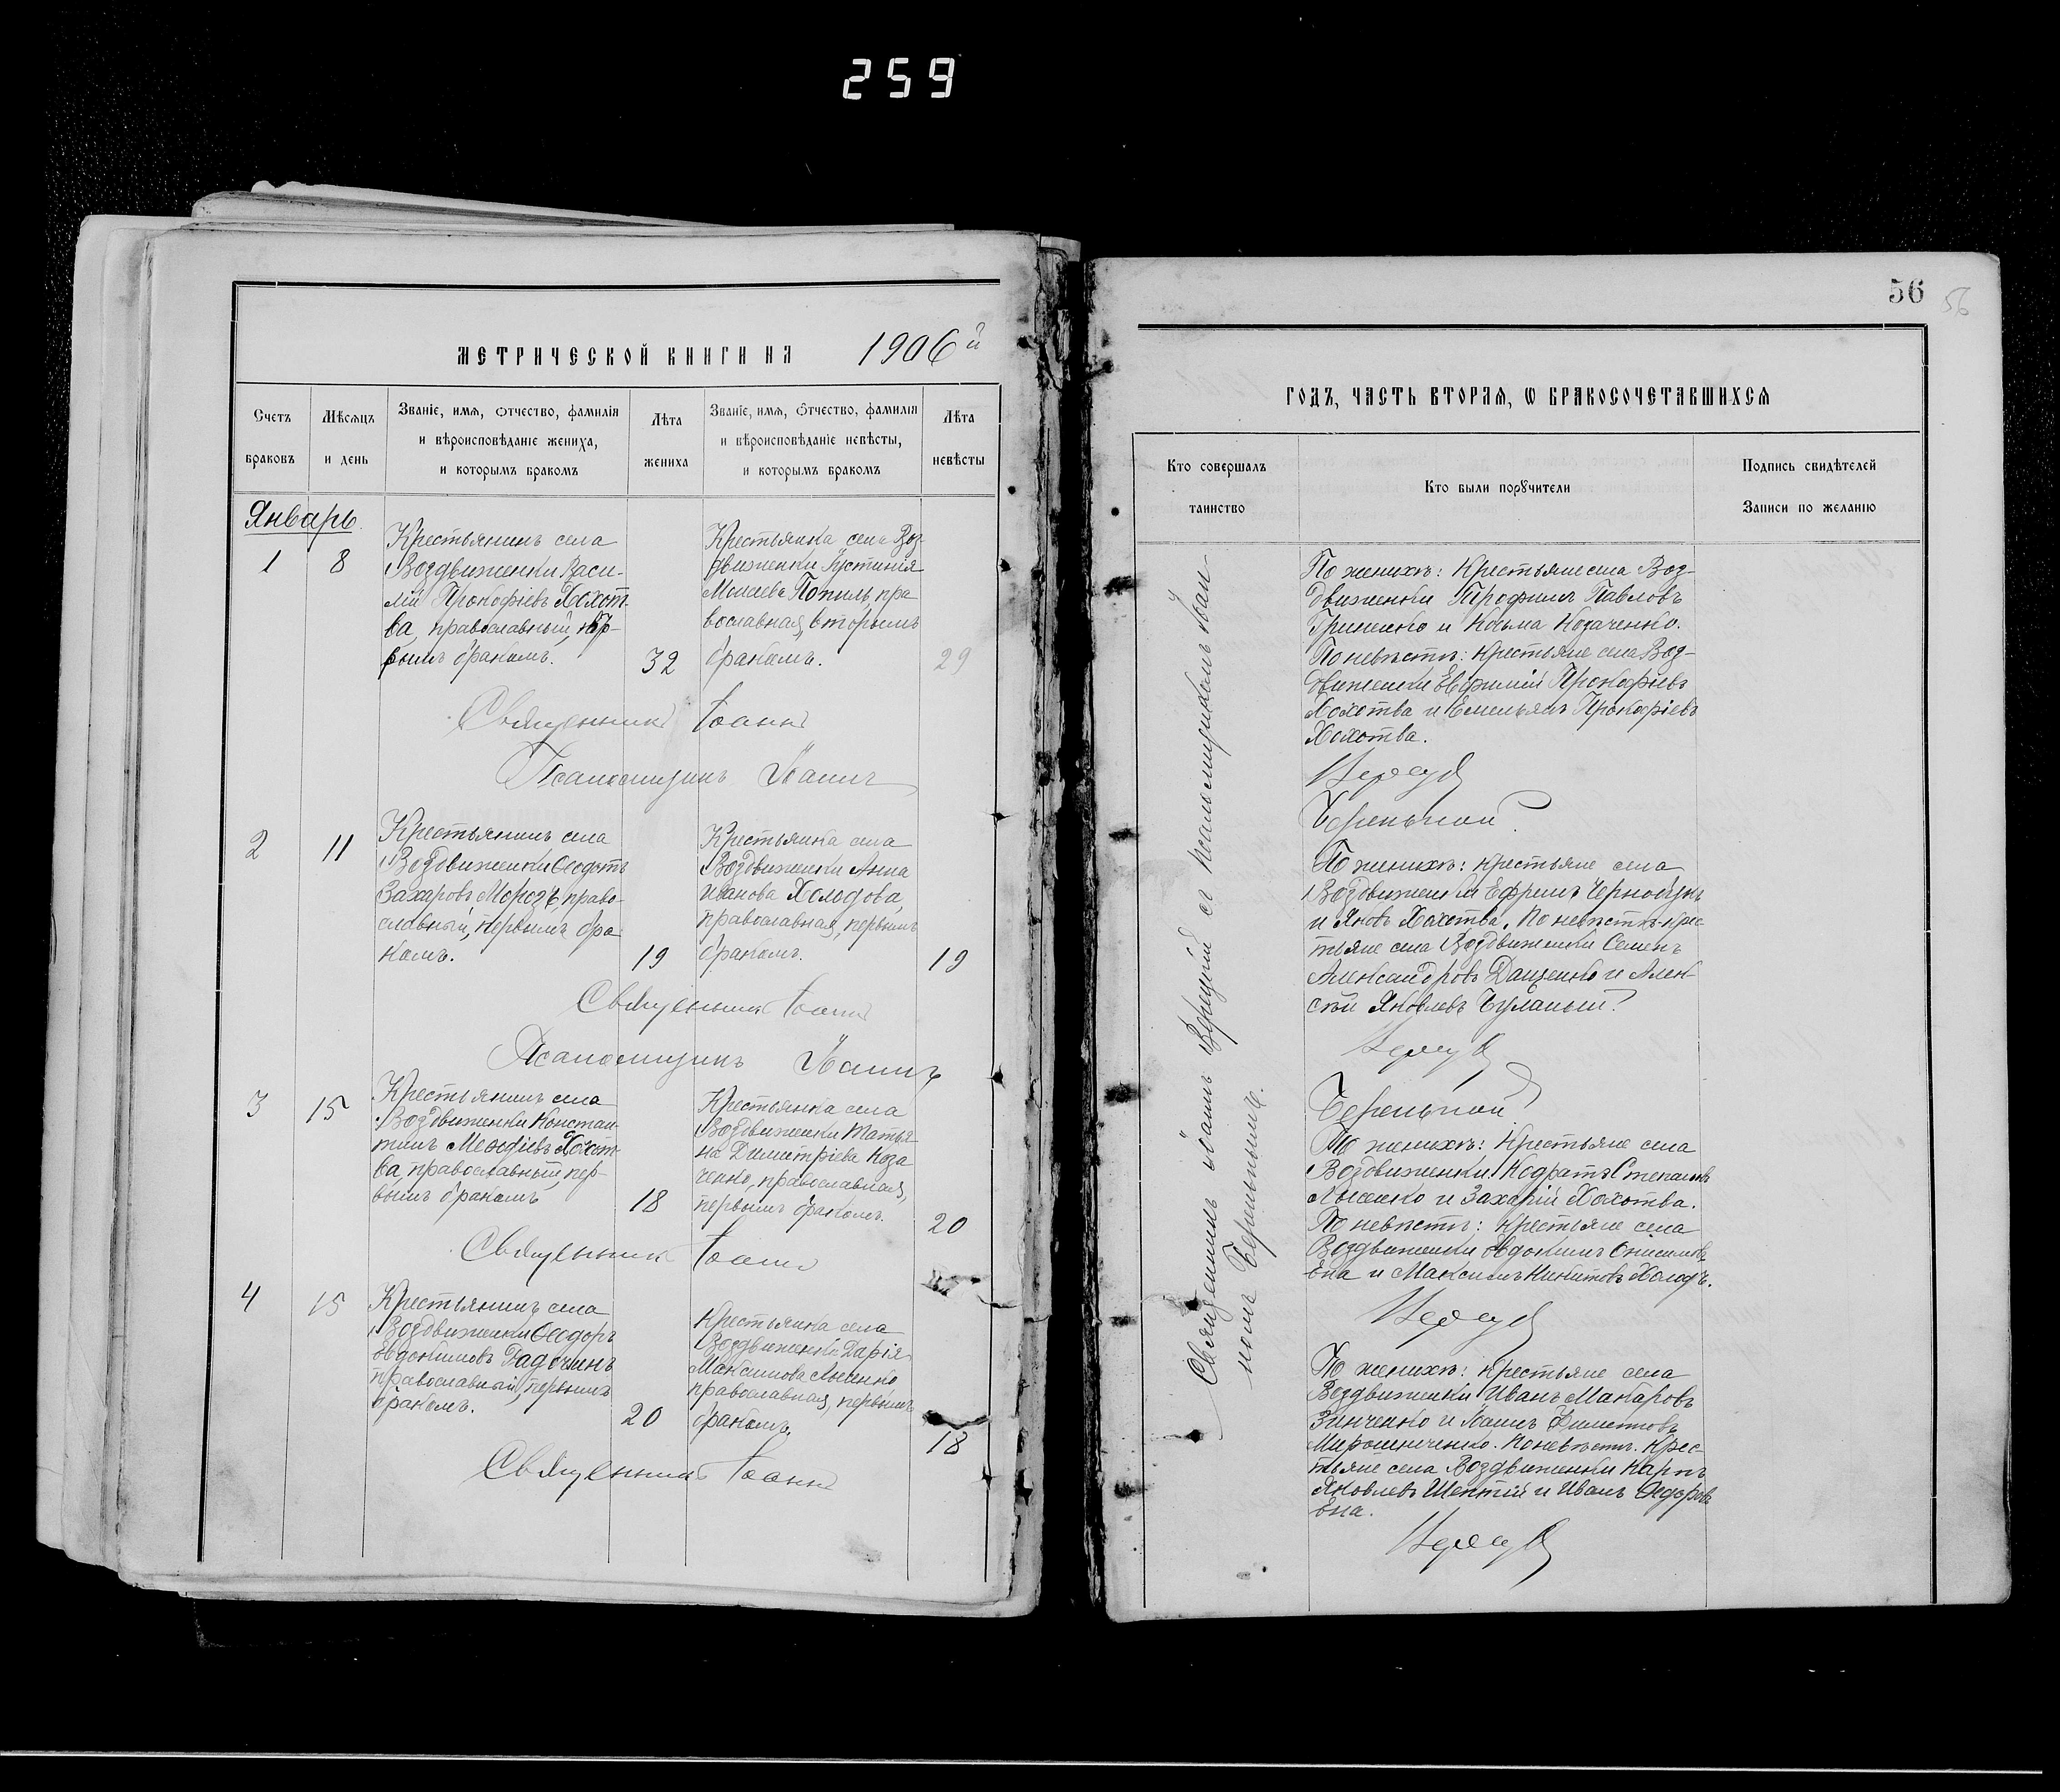 259
МЕТРИЧЕСКОЙ КНИГИ НА 1906й
Счетъ браковъ
Мѣсяцъ и день
Званіе, имя, отчество, фамилія
и вѣроисповѣданіе жениха,
и которымъ бракомъ
Лѣта жениха
Званіе, имя, отчество, фамилія
и вѣроисповѣданіе невѣсты,
и которымъ бракомъ
Лѣта невѣсты
Январь.
1
8
Крестьянинъ села
Воздвиженки Васи-
лій Прокофіевъ Хохот-
ва, православный, пер-
вымъ бракомъ.
32
Крестьянка села Воз-
движенки Іустинія
Попиль, пра
вославная, вторымъ
бракомъ.
29
Священникъ Іоаннъ
Псаломщикъ Іоаннъ
2
11
Крестьянинъ села
Воздвиженки Ѳеодотъ
Захаровъ Морозъ, право-
славный, первымъ бра
комъ.
19
Крестьянка села
Воздвиженки Анна
Иванова Холодова,
православная, первымъ
бракомъ.
19
Священникъ Іоаннъ
Псаломщикъ Іоаннъ
3
15
Крестьянинъ села
Воздвиженки Констан-
тинъ Меѳодіевъ Хохот-
ва, православный, пер-
вымъ бракомъ
18
Крестьянка села
Воздвиженки Татья-
на Димитріева Коза
ченко, православная,
первымъ бракомъ.
20
Священникъ Іоаннъ
4
15
Крестьянинъ села
Воздвиженки Ѳеодоръ
Евдокимовъ
православный, первымъ
бракомъ.
20
Крестьянка села
Воздвиженки Дарія
Максимова Лысенко
православная, первымъ
бракомъ.
18
Священникъ Іоаннъ
56
56
ГОДЪ, ЧАСТЬ ВТОРАЯ, Ѡ БРАКОСОЧЕТАВШИХСЯ
Кто совершалъ
таинство
Кто были порꙋчители
Подпись свидѣтелей
Записи по желанію
Священникъ Іоаннъ Верецкій съ псаломщикомъ Іоан-
номъ
По женихѣ: Крестьяне села Воз-
движенки Трофимъ Павловъ
Гриненко и Косьма Козаченко.
По невѣстѣ: крестьяне села Воз-
движенки Евфимій Прокофіевъ
Хохотва и Емельянъ Прокофіевъ
Хохотва.
По женихѣ: крестьяне села
Воздвиженки Ефремъ
и Яковъ Хохотва. По невѣстѣ: крес-
тьяне села Воздвиженки Семенъ
Александровъ Даценко и Алек-
сѣй Яковлевъ Буланый.
По женихѣ: Крестьяне села
Воздвиженки Кодратъ Степановъ
Лысенко и Захарій Хохотва.
По невѣстѣ: Крестьяне села
Воздвиженки Евдокимъ Онисимовъ
Ена и Максимъ Никитовъ Холодъ.
По женихѣ: крестьяне села
Воздвиженки Иванъ Макаровъ
Зинченко и Іоаннъ
Мирошниченко. По невѣстѣ: Крес-
тьяне села Воздвиженки Карпъ
Яковлевъ Шептій и Иванъ Ѳедоровъ
Ена.